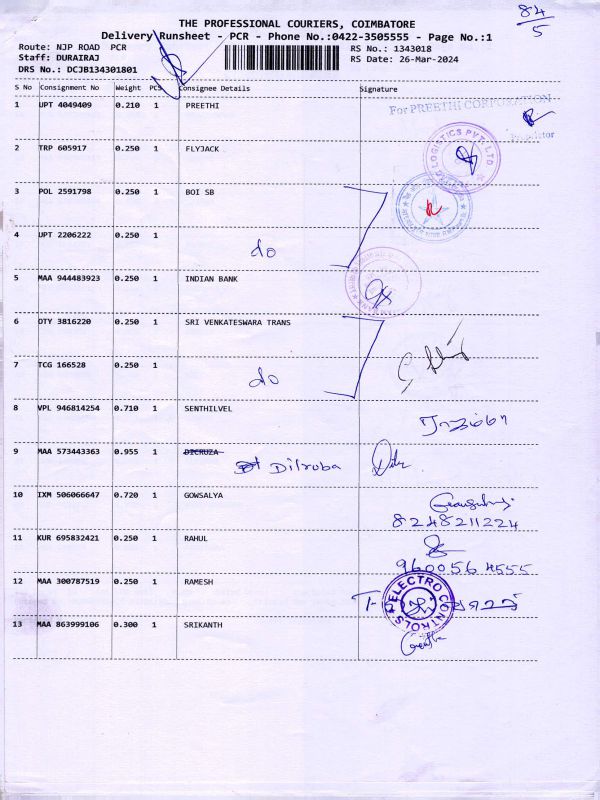 84
5
THE PROFESSIONAL COURIERS, COIMBATORE
Delivery Runsheet - PCR - Phone No.:0422-3505555 - Page No.:1
Route: NJP ROAD PCR
RS No.: 1343018
Staff: DURAIRAJ
RS Date: 26-Mar-2024
DRS No.: DCJB134301801
S No Consignment No Weight PCS Consignee Details Signature
1 UPT 4049409 0.210 1 PREETHI
For PREETHI CORPORATION
Proprietor
2 TRP 605917 0.250 1 FLYJACK
LOGISTICS PVT. LTD
3 POL 2591798 0.250 1 BOI SB
4 UPT 2206222 0.250 1
do
5 MAA 944483923 0.250 1 INDIAN BANK
6 OTY 3816220 0.250 1 SRI VENKATESWARA TRANS
7 TCG 166528 0.250 1
do
8 VPL 946814254 0.710 1 SENTHILVEL
9 MAA 573443363 0.955 1 DICRUZA
Dilroba
10 IXM 506066647 0.720 1 GOWSALYA
8248211224
11 KUR 695832421 0.250 1 RAHUL
9600564555
12 MAA 300787519 0.250 1 RAMESH
ELECTRO CONTROLS
13 MAA 863999106 0.300 1 SRIKANTH